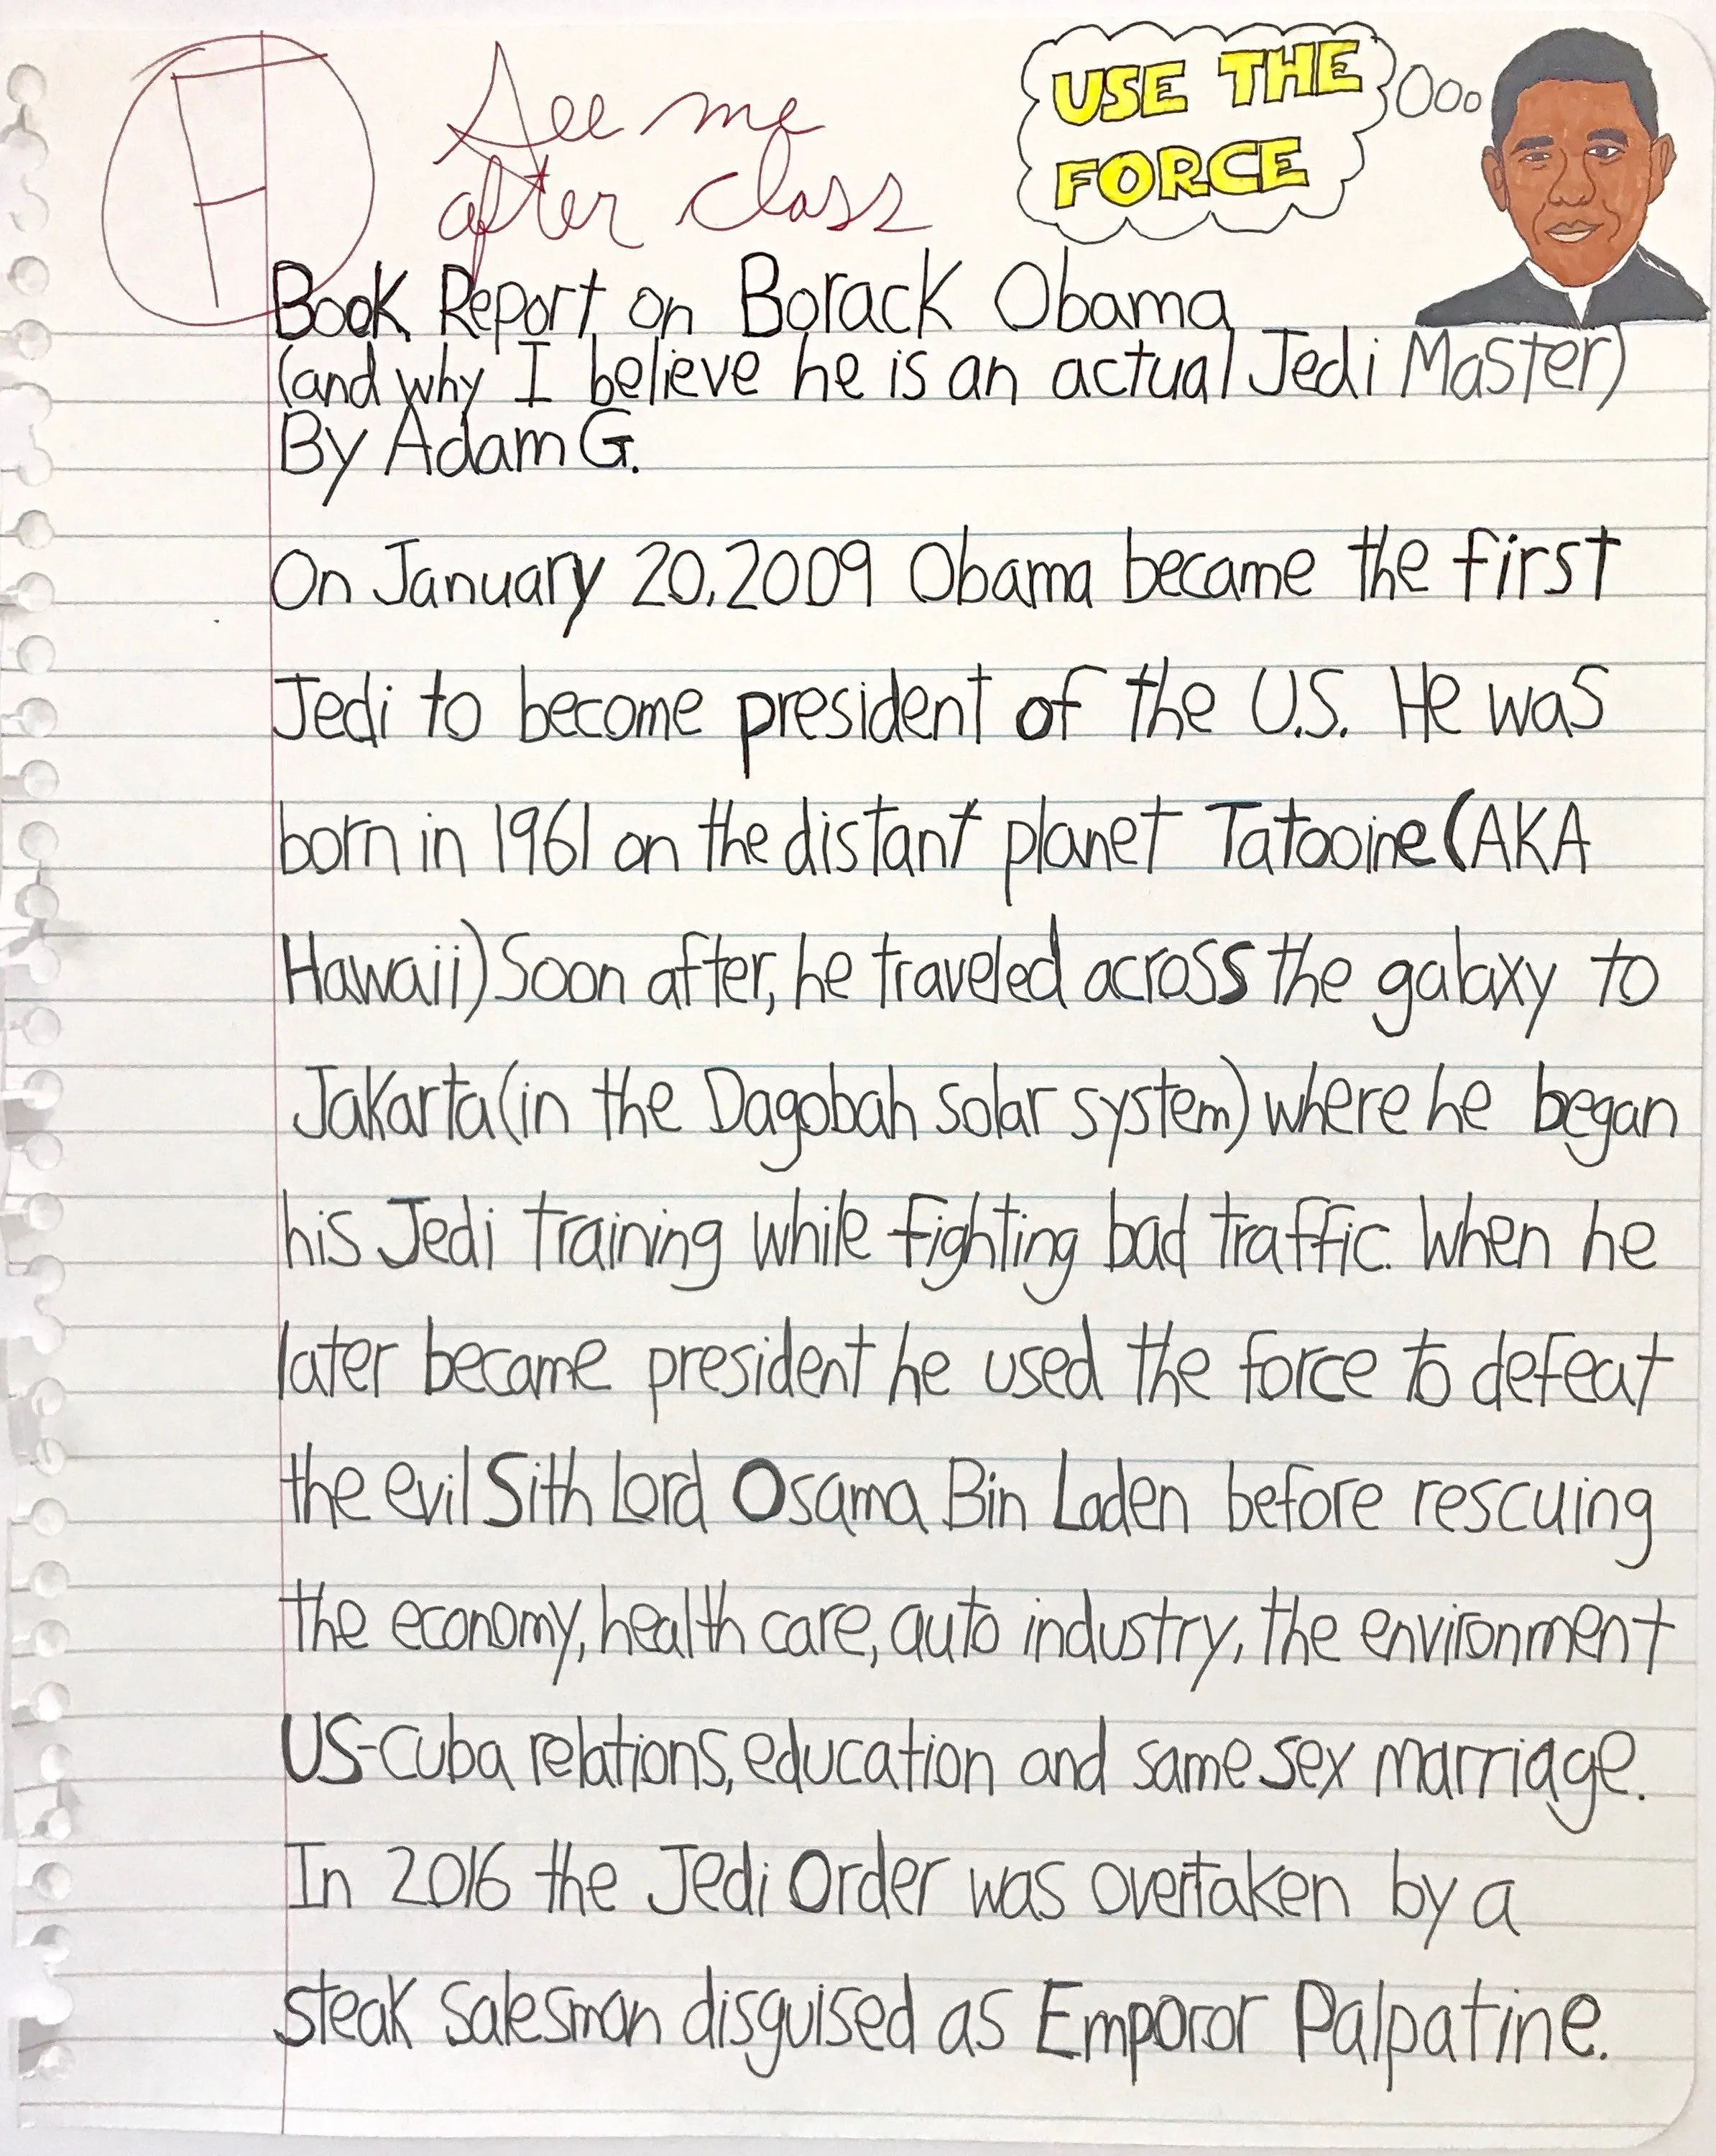 F
See me
after class
USE THE
FORCE
Book Report on Borack Obama
(and why I believe he is an actual Jedi Master)
By Adam G.
On January 20, 2009 Obama became the first
Jedi to become president of the U.S. He was
born in 1961 on the distant planet Tatooine (AKA
Hawaii) Soon after, he traveled across the galaxy to
Jakarta (in the Dagobah solar system) where he began
his Jedi training while fighting bad traffic. When he
later became president he used the force to defeat
the evil Sith Lord Osama Bin Laden before rescuing
the economy, health care, auto industry, the environment
US-Cuba relations, education and same sex marriage.
In 2016 the Jedi Order was overtaken by a
steak salesman disguised as Emporor Palpatine.